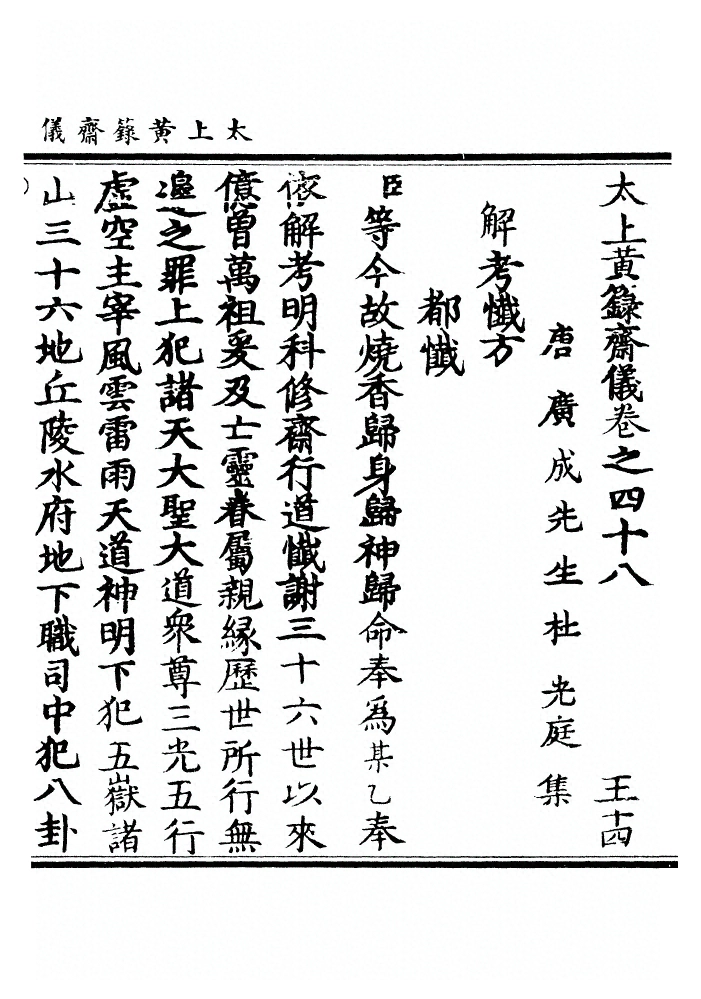 太上黃籙齋儀
太上黃籙齋儀卷之四十八 王十四
唐廣成先生杜光庭集
解考懺方
都懺
臣等今故燒香歸身歸神歸命奉爲某乙奉
依解考明科修齋行道懺謝三十六世以來
億曾萬祖爰及士靈眷屬親緣歷世所行無
邊之罪上犯諸天大聖大道衆尊三光五行
虛空主宰風雲雷雨天道神明下犯五嶽諸
山三十六地丘陵水府地下職司中犯八卦